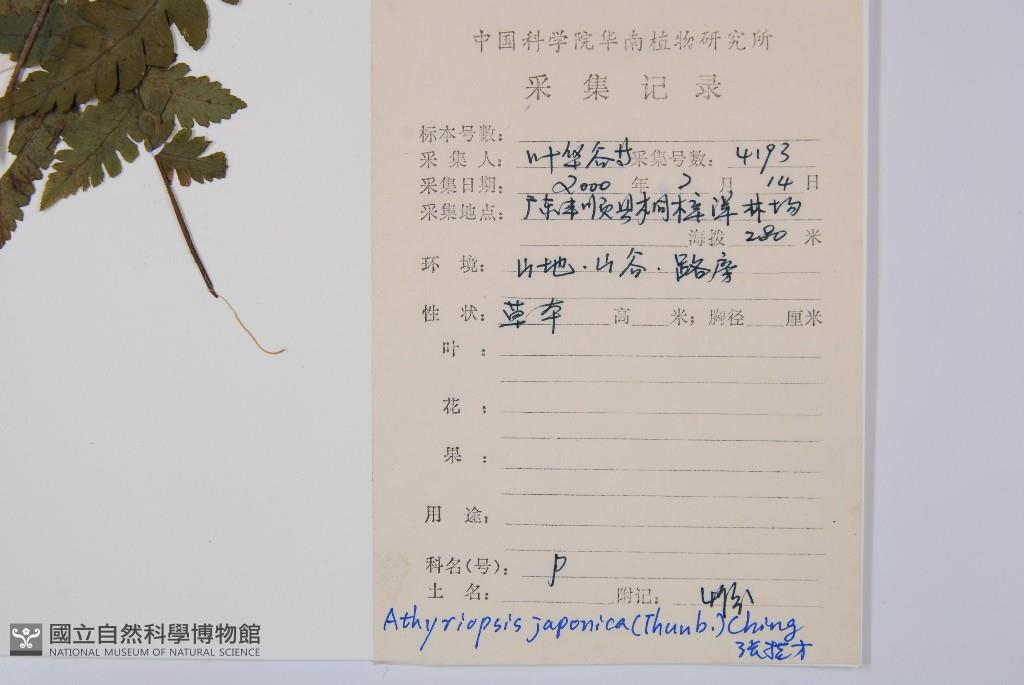 中国科学院华南植物研究所
采集记录
标本号数:
采集人: 叶华谷 采集号数: 4193
采集日期: 2000 年 月 14 日
采集地点: 广东丰顺县桐梓洋林场
海拨 280 米
环境: 山地.山谷.路旁
性状: 草本 高 米; 胸径 厘米
叶:
花:
果:
用途:
科名(号): P
土名: 附记:
Athyriopsis japonica (Thunb.) Ching
國立自然科學博物館
NATIONAL MUSEUM OF NATURAL SCIENCE